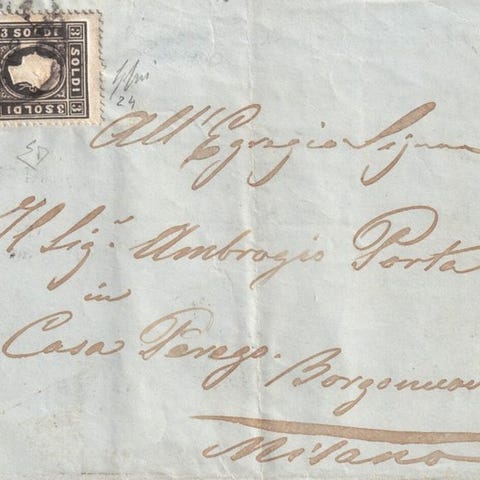 3 SOLDI
3 SOLDI
SOLDI
24
All' Egregio Signor
Il Sig.r Ambrogio Porta
in
Casa Perego.
Borgonuovo
Milano